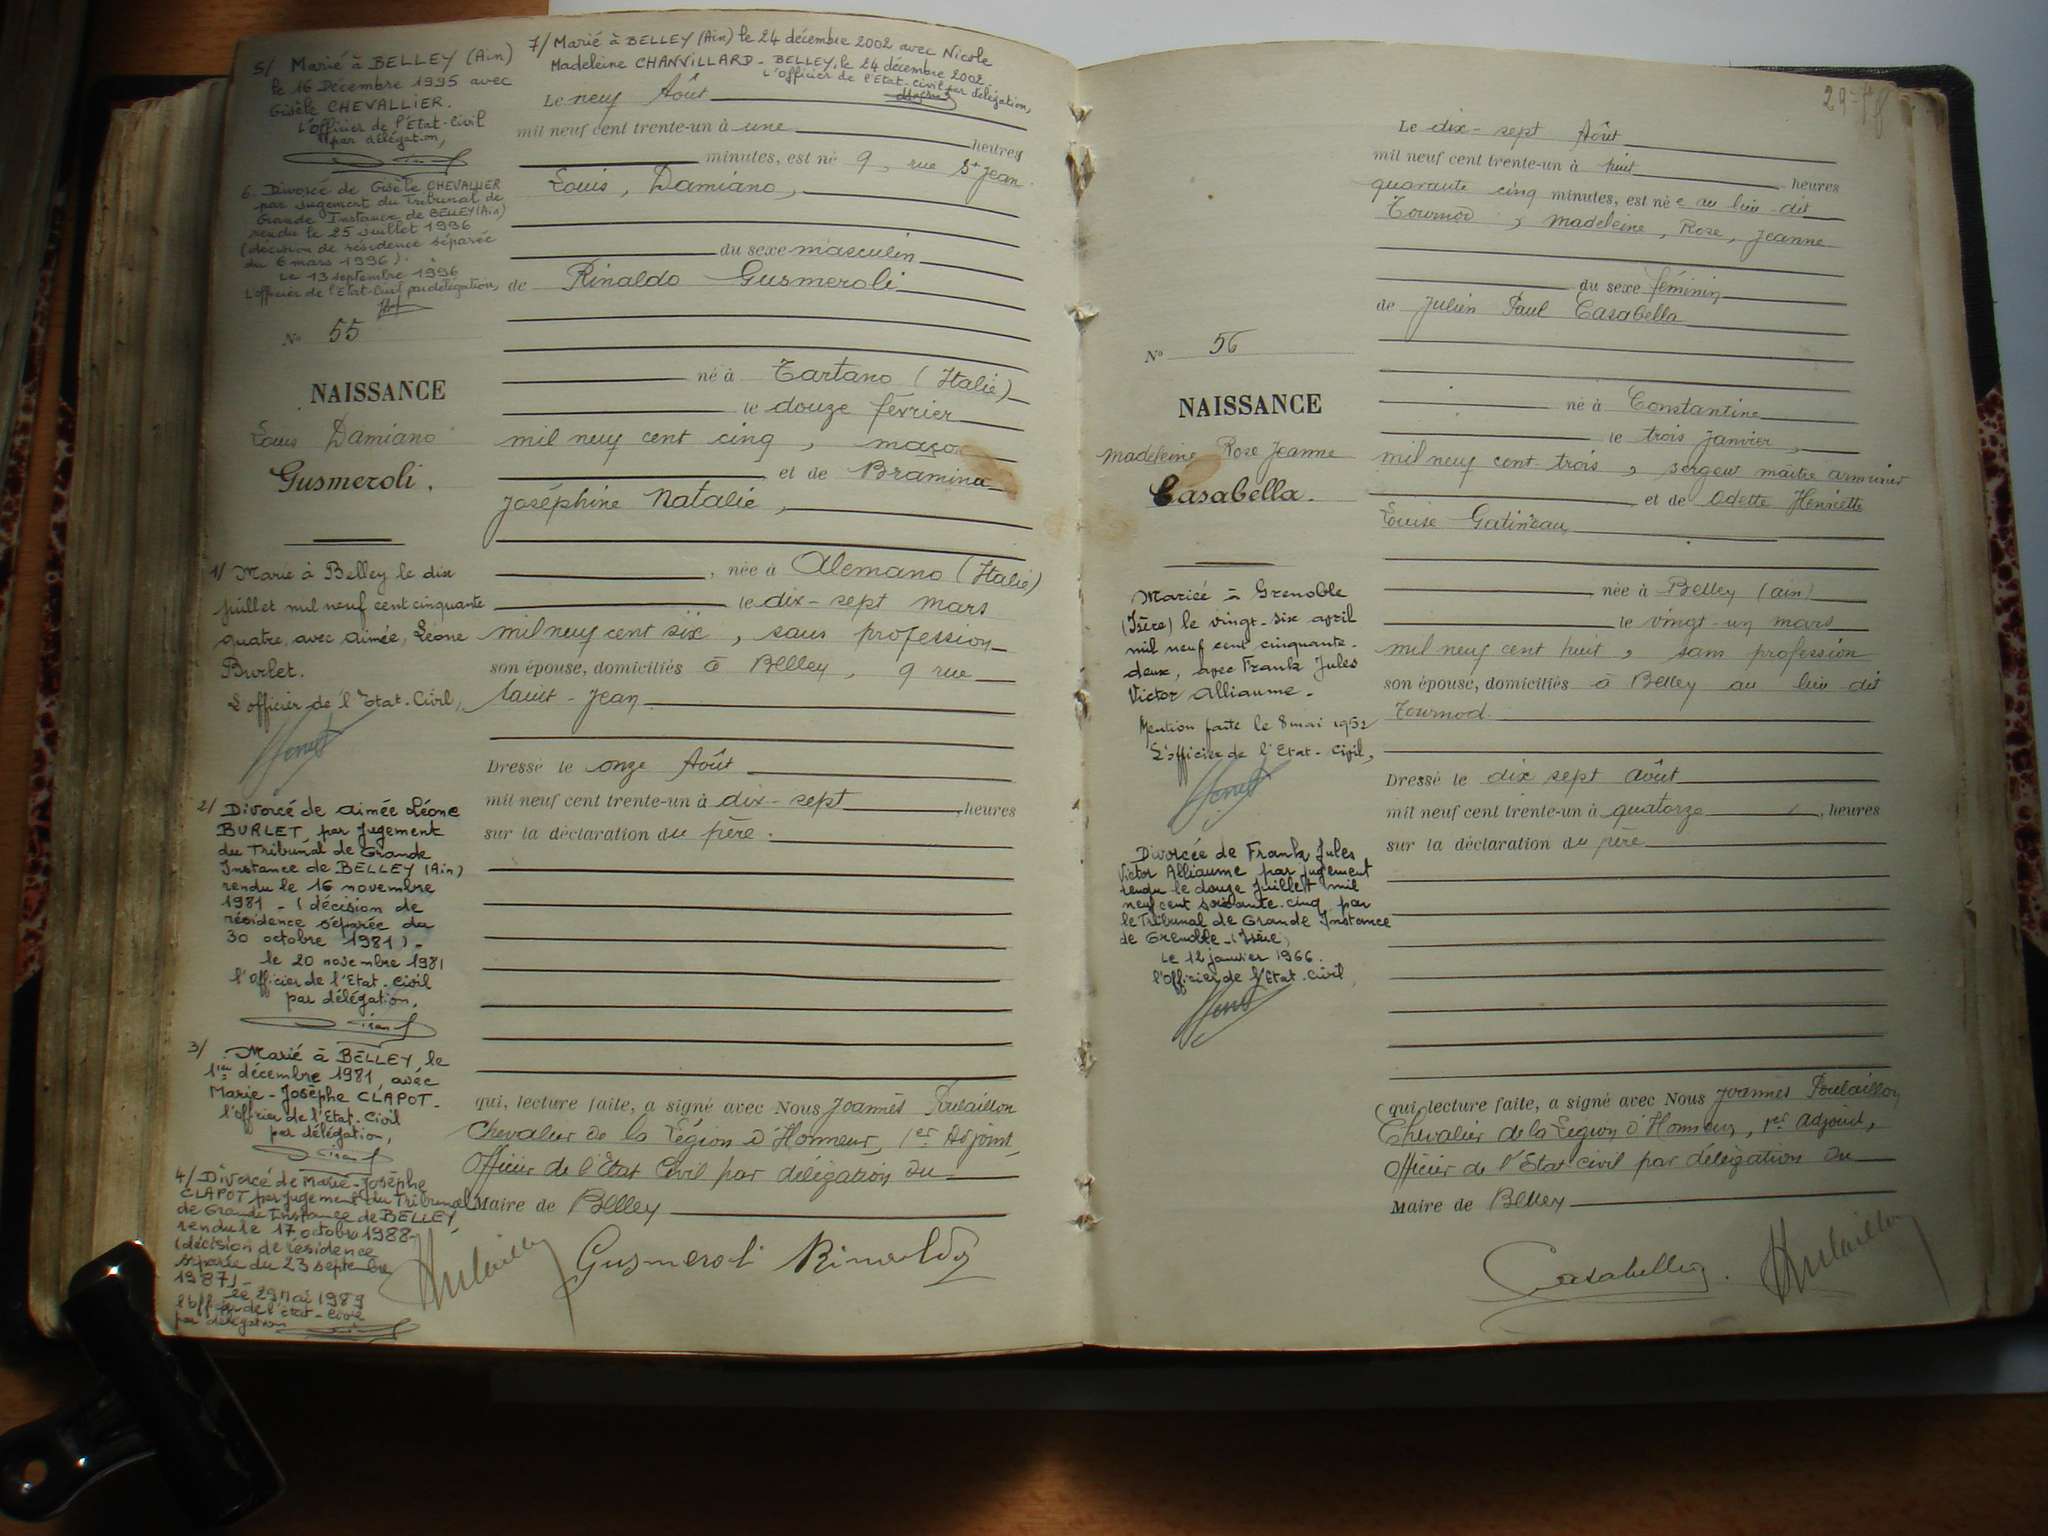 5/ Marié à BELLEY (Ain)
le 16 Décembre 1995 avec
Gisèle CHEVALLIER.
L'Officier de l'Etat-Civil
par délégation,
6. Divorcé de Gisèle CHEVALLIER
par jugement du Tribunal de
Grande Instance de BELLEY (Ain)
rendu le 25 juillet 1996
(décision de résidence séparée
du 6 mars 1996).
Le 13 septembre 1996
L'officier de l'Etat-Civil par délégation,
N° 55
NAISSANCE
Louis Damiano
Gusmeroli.
1/ Marié à Belley le dix
juillet mil neuf cent cinquante
quatre, avec Aimée, Léone
Burlet.
L'officier de l'Etat-Civil,
2/ Divorcé de Aimée Léone
BURLET, par jugement
du Tribunal de Grande
Instance de BELLEY (Ain)
rendu le 16 novembre
1981 - (décision de
résidence séparée du
30 octobre 1981) -
le 20 novembre 1981
l'Officier de l'Etat-Civil
par délégation,
3/ Marié à BELLEY, le
1er décembre 1981, avec
Marie-Josèphe CLAPOT-
l'offier de l'Etat-Civil
par délégation,
4/ Divorcé de Marie-Josèphe
CLAPOT par jugement du Tribunal
de Grande Instance de BELLEY,
rendu le 17 octobre 1988-
(décision de résidence
séparée du 23 septembre
1987)-
Le 29 Mai 1989
l'officier de l'état-Civil
par délégation
7/ Marié à BELLEY (Ain) le 24 décembre 2002 avec Nicole
Madeleine CHANVILLARD - BELLEY, le 24 décembre 2002.
L'officier de l'Etat-civil par délégation,
Le neuf Août
mil neuf cent trente-un à une heures
minutes, est né 9, rue St Jean.
Louis, Damiano,
du sexe masculin
de Rinaldo Gusmeroli
né à Tartano (Italie)
le douze février
mil neuf cent cinq, maçon
et de Bramina
Joséphine Natalie,
, née à Alemano (Italie)
le dix-sept mars
mil neuf cent six, sans profession
son épouse, domiciliés à Belley, 9 rue
Saint-Jean
Dressé le onze Août
mil neuf cent trente-un à dix-sept, heures
sur la déclaration du père.
qui, lecture faite, a signé avec Nous Joannès Poulaillon
Chevalier de la Légion d'Honneur, 1er Adjoint,
Officier de l'Etat Civil par délégation du
Maire de Belley
Gusmeroli Rinaldo
N° 56
NAISSANCE
Madeleine Rose Jeanne
Casabella.
Mariée à Grenoble
(Isère) le vingt-six avril
mil neuf cent cinquante-
deux, avec Frank Jules
Victor Alliaume.
Mention faite le 8 mai 1952
L'officier de l'Etat-Civil,
Divorcée de Frank Jules
Victor Alliaume par jugement
rendu le douze juillet mil
neuf cent soixante-cinq par
le Tribunal de Grande Instance
de Grenoble - (Isère)
Le 12 janvier 1966.
l'Officier de l'Etat-Civil,
Le dix-sept Août
mil neuf cent trente-un à huit, heures
quarante cinq minutes, est née au lieu-dit
Tournod, Madeleine, Rose, Jeanne
du sexe féminin
de Julien Paul Casabella
né à Constantine
le trois janvier,
mil neuf cent trois, sergent maître armurier
et de Odette Henriette
Louise Gatineau
née à Belley (ain)
le vingt-un mars
mil neuf cent huit, sans profession
son épouse, domiciliés à Belley au lieu dit
Tournod.
Dressé le dix sept août
mil neuf cent trente-un à quatorze, heures
sur la déclaration du père
qui, lecture faite, a signé avec Nous Joannès Poulaillon,
Chevalier de la Légion d'Honneur, 1er Adjoint,
Officier de l'Etat civil par délégation du
Maire de Belley
Casabella. Poulaillon